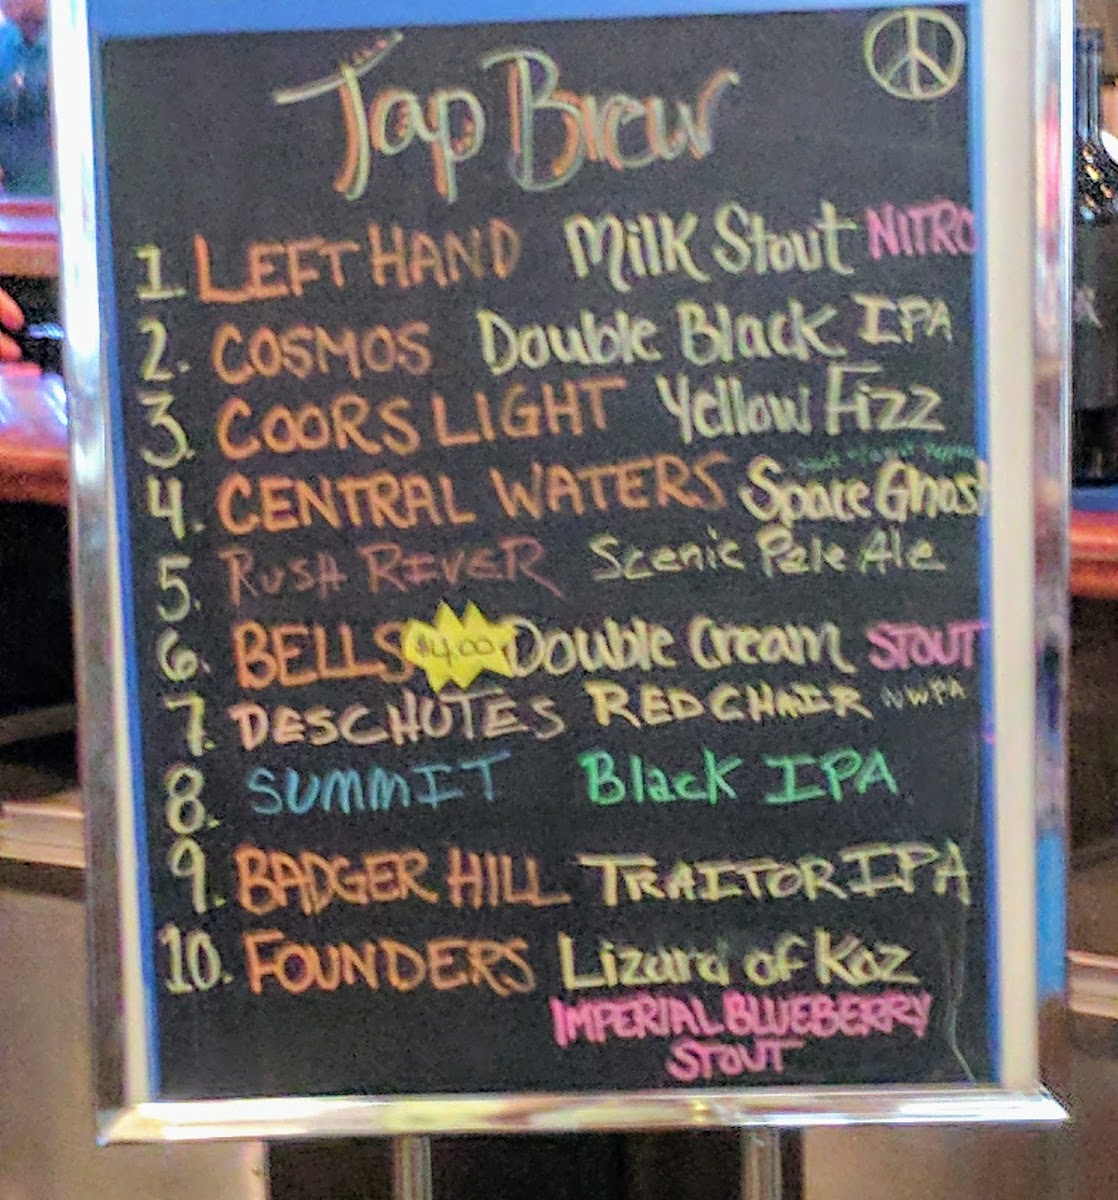 Tap Brew
1. LEFT HAND Milk Stout NITRO
2. COSMOS Double Black IPA
3. COORS LIGHT Yellow Fizz
4. CENTRAL WATERS Space Ghost
5. RUSH RIVER Scenic Pale Ale
6. BELLS $4.00 Double Cream STOUT
7. DESCHUTES RED CHAIR NWPA
8. SUMMIT Black IPA
9. BADGER HILL TRAITOR IPA
10. FOUNDERS Lizard of Koz
IMPERIAL BLUEBERRY
STOUT